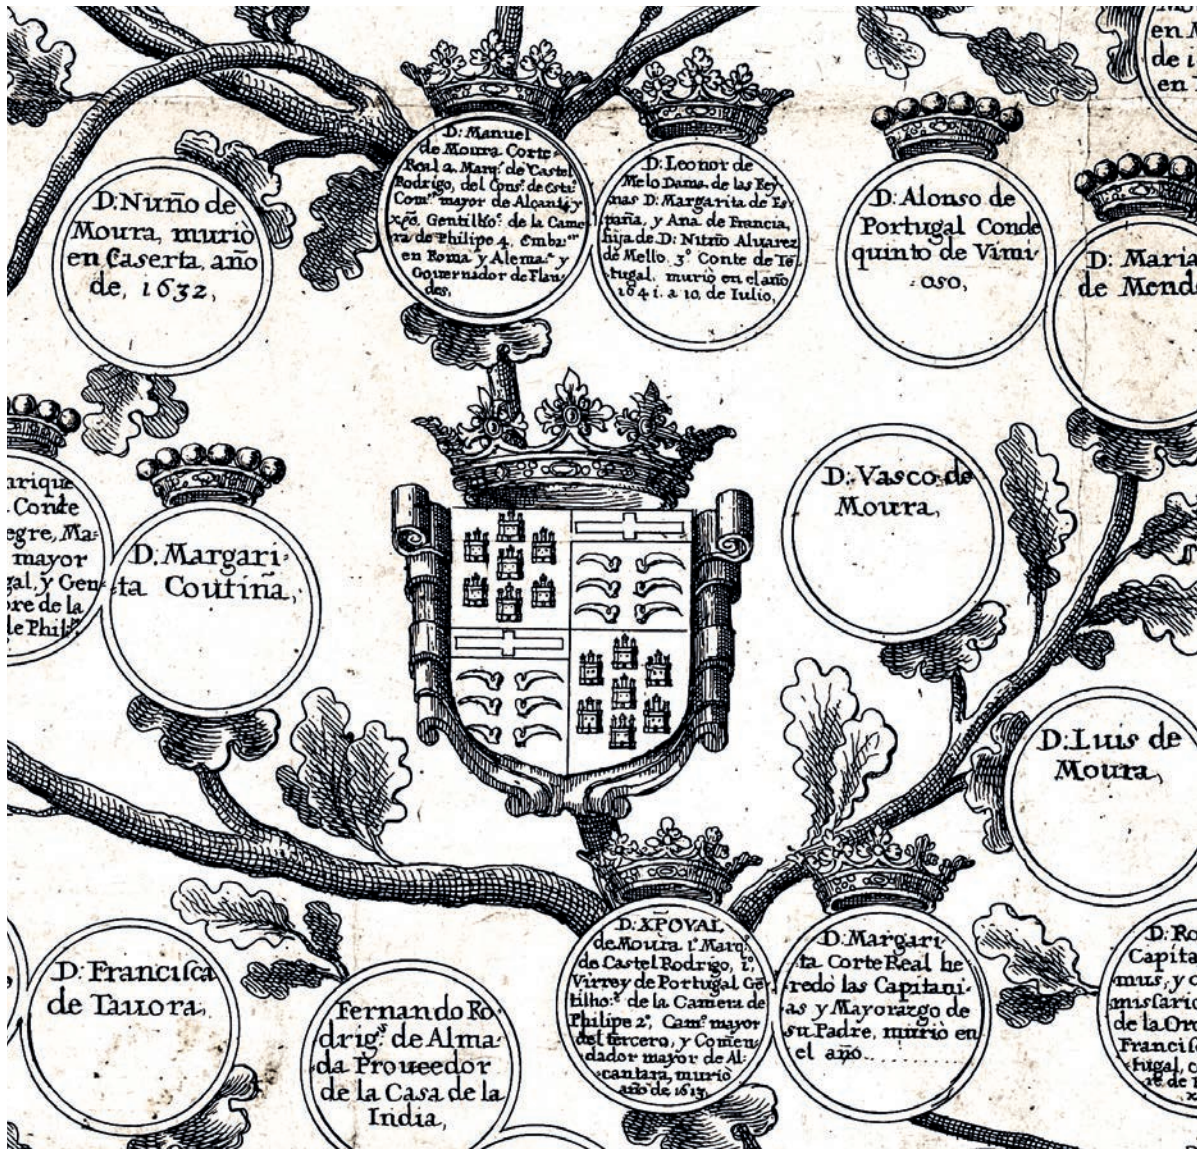 en
de 1
en
D: Manuel
de Moura Corte
Real 2. Marq.ˢ de Castel
Rodrigo, del Cons.º de Esta.º
Com.ºʳ mayor de Alcant.ª y
xp̃o. Gentilho.ᵉ de la Came
ra de Philipe 4. Emb.ᵒʳ
en Roma y Alema.ª y
Gouernador de Flan
des,
D: Leonor de
Melo Dama de las Rey
nas D: Margarita de Es
paña, y Ana de Francia,
hija de D: Nuño Aluarez
de Mello. 3º Conte de Te
tugal. murió en el año
1641. a 10. de Iulio,
D: Nuño de
Moura, murio
en Caserta, año
de, 1632,
D: Alonso de
Portugal Conde
quinto de Vimi:
oso,
D: Maria
de Mend
nrique
Conte
egre, Ma:
mayor
gal. y Gen
bre de la
de Phil
D: Margari:
ta Coutiña,
D: Vasco de
Moura,
D: Luis de
Moura,
D: Francisca
de Tauora,
Fernando Ro
drig.ˢ de Alma
da Proueedor
de la Casa de la
India,
D: XP̃OVAL
de Moura 1º Marq.º
de Castel Rodrigo, 1º,
Virrey de Portugal Gẽ
tilho.ᵉ de la Camera de
Philipe 2º, Cam.º mayor
del tercero, y Comen
dador mayor de Al:
cantara, murio
año de 1613,
D: Margari
ta Corte Real he
redó las Capitani
as y Mayorazgo de
su Padre, murió en
el año
D: Ro
Capita
mus, y
missario
de la Or
Francisc
tugal, c